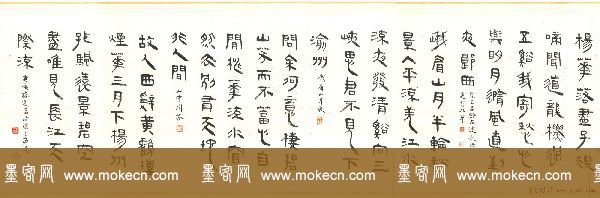 楊華落盡子規
啼聞道龍標過
五谿我寄愁心
與明月隨風直到
夜郎西
峨眉山月半輪秋
景入平羌江水
流夜發清谿向三
峽思君不見下
渝州 峨眉山月歌
問余何意棲碧
山笑而不答心自
閒桃華流水窅
然去別有天地
非人間 山中問答
故人西辭黃鶴樓
煙華三月下揚州
孤帆遠景碧空
盡唯見長江天
際流
墨客网 www.mokecn.com 墨客网 www.mokecn.com 墨客网 www.mokecn.com